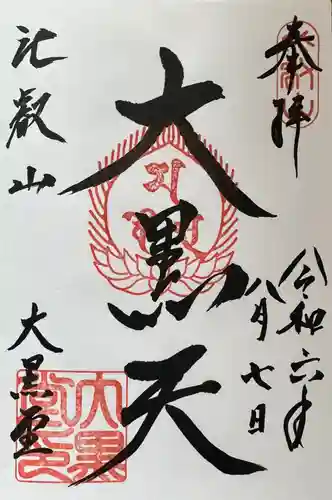 奉拝
令和六年
八月七日
大黒天
比叡山
大黒堂